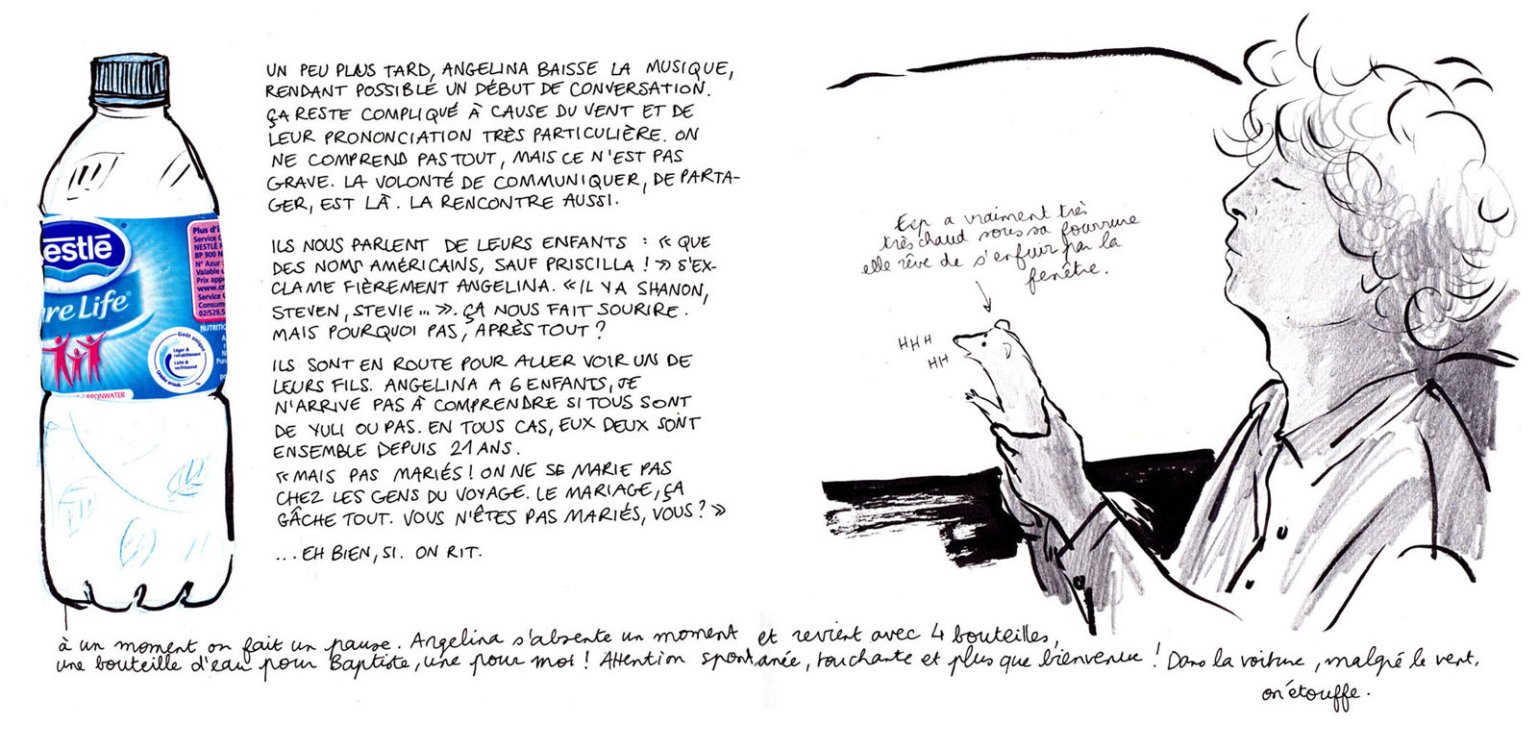 UN PEU PLUS TARD, ANGELINA BAISSE LA MUSIQUE,
RENDANT POSSIBLE UN DÉBUT DE CONVERSATION.
ÇA RESTE COMPLIQUÉ À CAUSE DU VENT ET DE
LEUR PRONONCIATION TRÈS PARTICULIÈRE. ON
NE COMPREND PAS TOUT, MAIS CE N'EST PAS
GRAVE. LA VOLONTÉ DE COMMUNIQUER, DE PARTA-
GER, EST LÀ. LA RENCONTRE AUSSI.
ILS NOUS PARLENT DE LEURS ENFANTS : « QUE
DES NOMS AMÉRICAINS, SAUF PRISCILLA ! » S'EX-
CLAME FIÈREMENT ANGELINA. « IL Y A SHANON,
STEVEN, STEVIE... ». ÇA NOUS FAIT SOURIRE.
MAIS POURQUOI PAS, APRÈS TOUT ?
ILS SONT EN ROUTE POUR ALLER VOIR UN DE
LEURS FILS. ANGELINA A 6 ENFANTS, JE
N'ARRIVE PAS À COMPRENDRE SI TOUS SONT
DE YULI OU PAS. EN TOUS CAS, EUX DEUX SONT
ENSEMBLE DEPUIS 21 ANS.
« MAIS PAS MARIÉS ! ON NE SE MARIE PAS
CHEZ LES GENS DU VOYAGE. LE MARIAGE, ÇA
GÂCHE TOUT. VOUS N'ÊTES PAS MARIÉS, VOUS ? »
... EH BIEN, SI. ON RIT.
estlé
re Life
Plus d'i
Service C
NESTLÉ F
BP 900 N
N° Azur
Valable
Prix appe
www.
Service C
Consum
02/529.5
NUTRITIO
Goût unique
Léger &
rafraîchissant
Licht &
verfrissend
Unieke smaak
BRONWATER
Eep a vraiment très
très chaud sous sa fourrure
elle rêve de s'enfuir par la
fenêtre.
HHH
HH
à un moment on fait un pause. Angelina s'absente un moment et revient avec 4 bouteilles,
une bouteille d'eau pour Baptiste, une pour moi ! Attention spontanée, touchante et plus que bienvenue ! Dans la voiture, malgré le vent,
on étouffe.